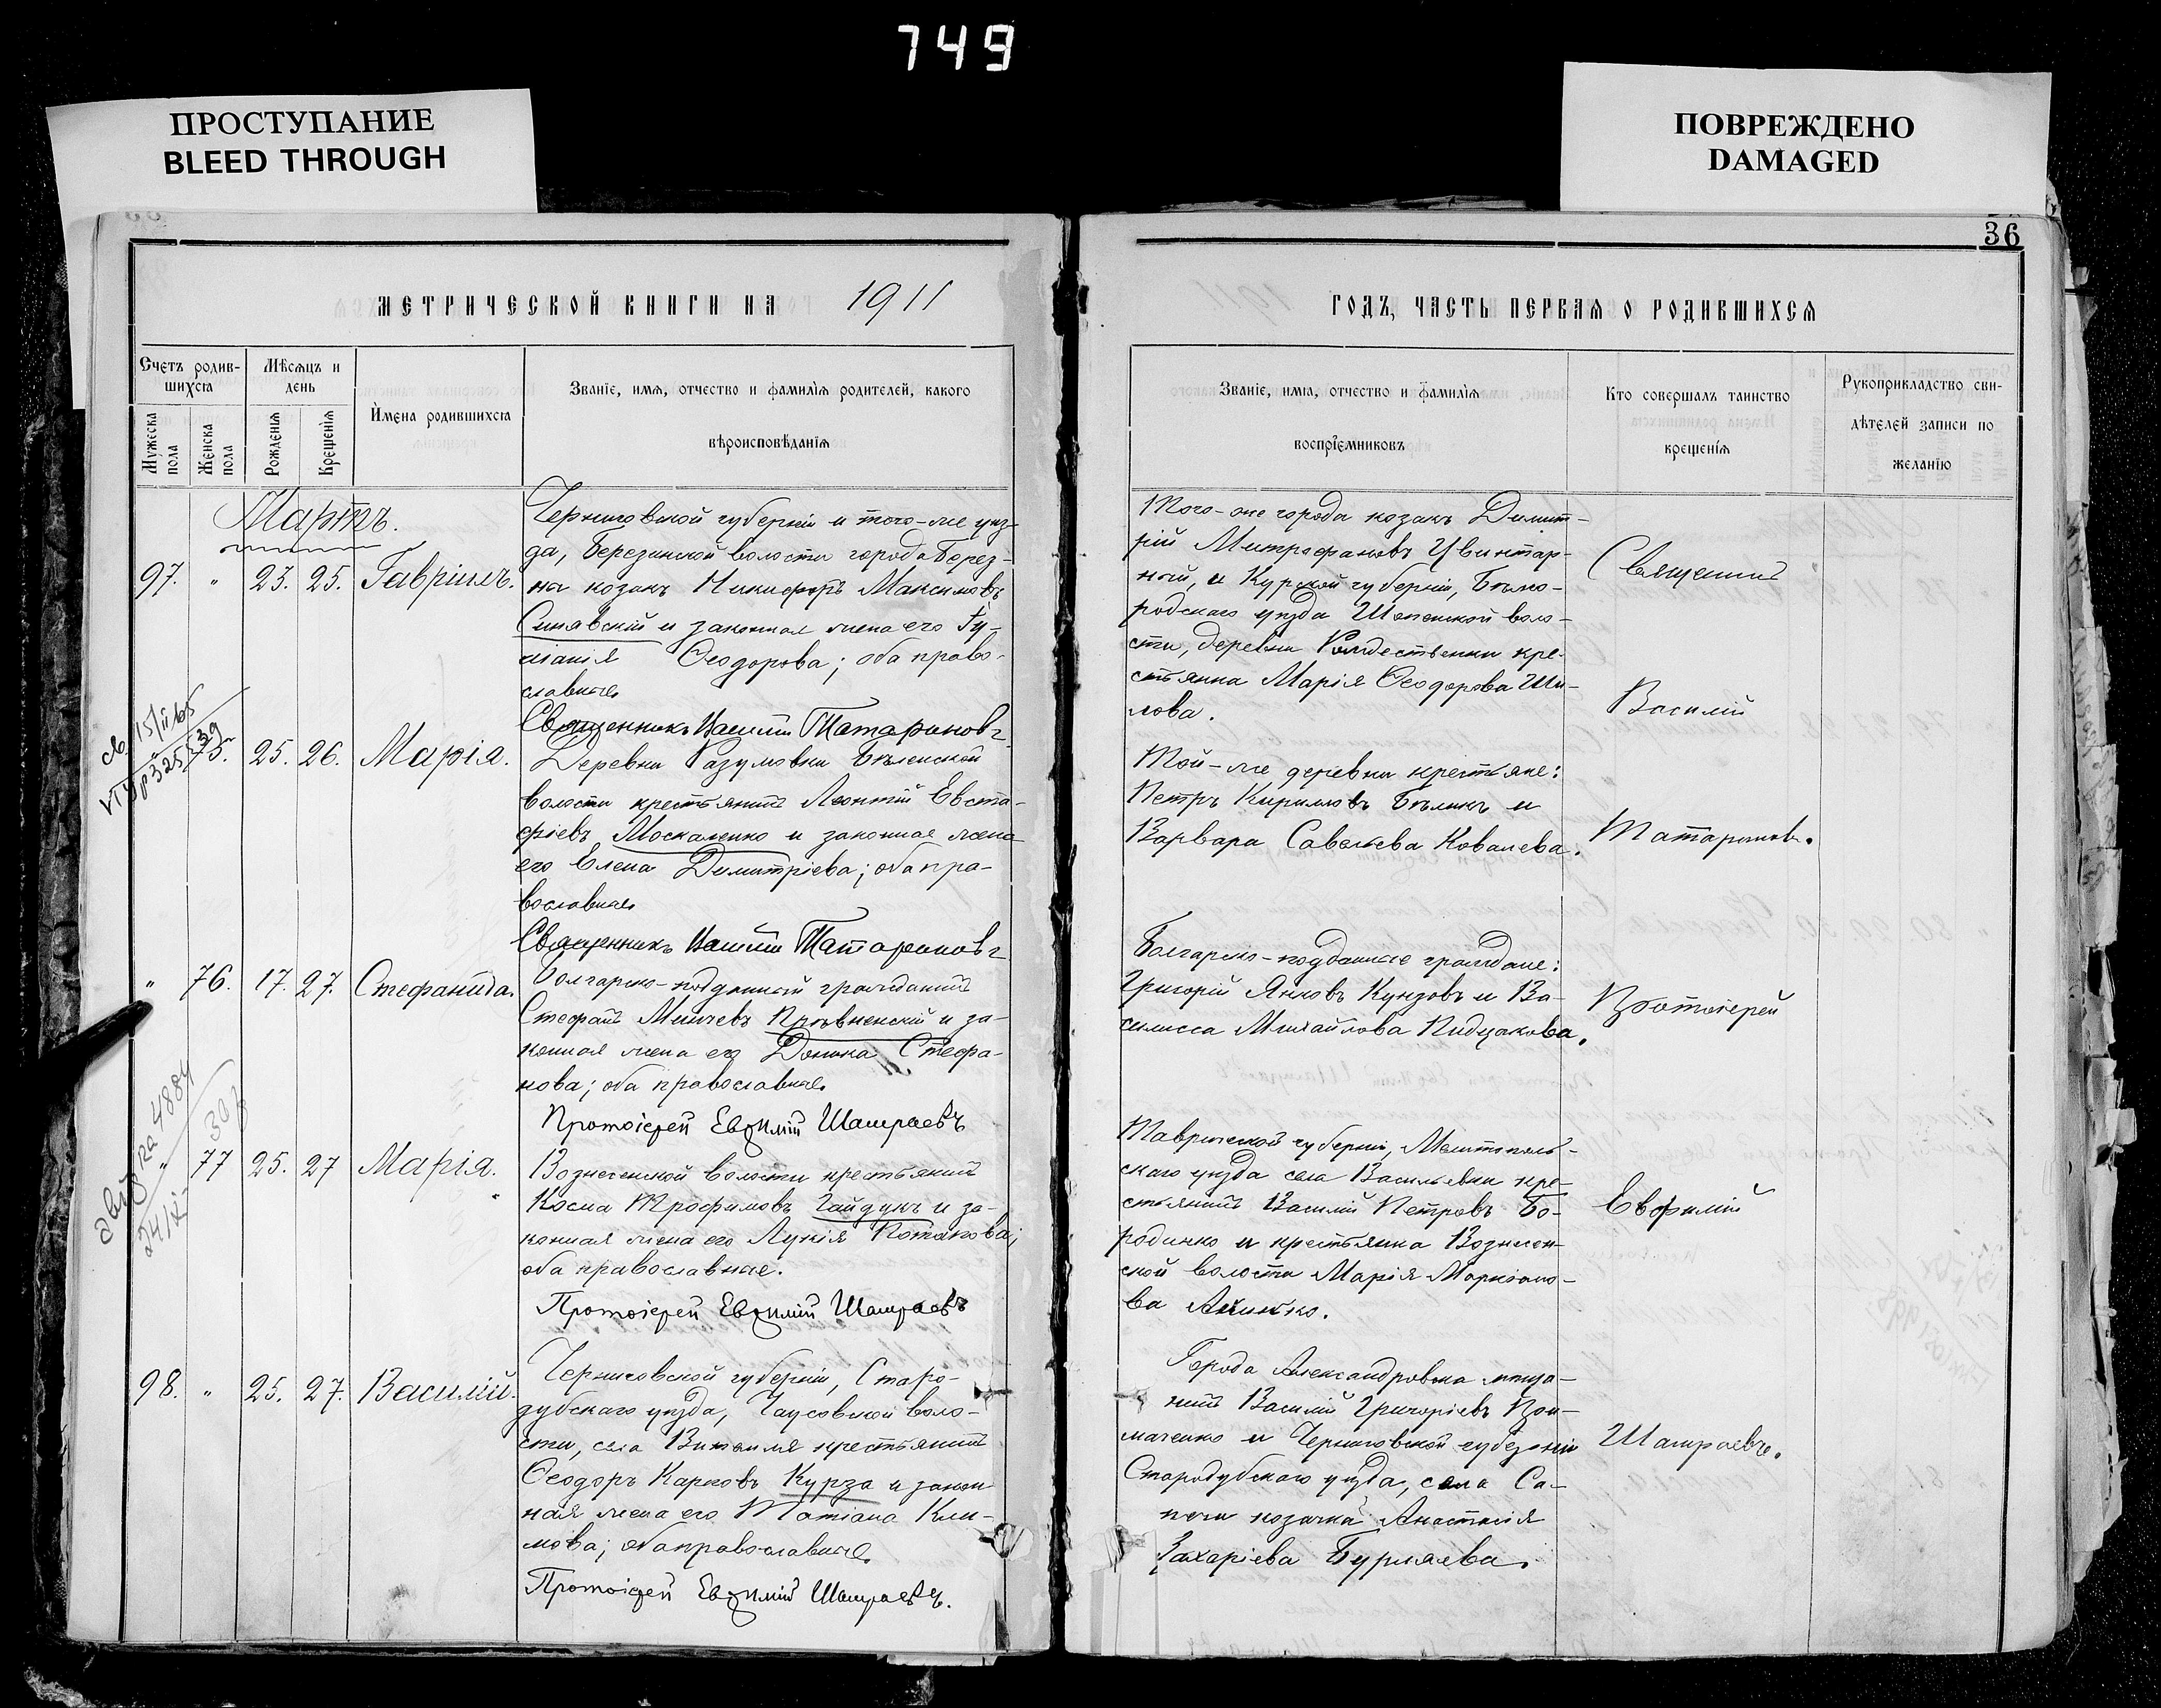 749
ПРОСТУПАНИЕ
BLEED THROUGH
ПОВРЕЖДЕНО
DAMAGED
36
МЕТРИЧЕСКОЙ КНИГИ НА 1911
ГОДЪ, ЧАСТЬ ПЕРВАЯ О РОДИВШИХСЯ
Счетъ родив-
шихся
Мужеска пола
Женска пола
Мѣсяцъ и
день
Рожденія
Крещенія
Имена родившихся
Званіе, имя, отчество и фамилія родителей, какого
вѣроисповѣданія
Званіе, имя, отчество и фамилія
воспріемниковъ
Кто совершалъ таинство
крещенія
Рукоприкладство сви-
дѣтелей записи по
желанію
Мартъ.
97. " 23. 25. Гавріилъ.
Черниговской губерніи и того-же уѣз-
да, Березинской волости города Берез-
на козакъ Никифоръ Максимовъ
Синявскій и законная жена его
Ѳеодорова; оба право-
славные
Священникъ Василій Татариновъ
Того-же города козакъ Димит-
рій Митрофановъ Цвинтар-
ный, и Курской губерніи, Бѣло-
родскаго уѣзда воло-
сти, деревни Рождественки кре-
стьянка Марія Ѳеодорова Ши-
лова.
Священникъ
Василій
Татариновъ.
75. 25. 26. Марія.
Деревни Разумовки Бѣленской
волости крестьянинъ Леонтій Евста-
фіевъ Москаленко и законная жена
его Елена Димитріева; оба пра-
вославные
Священникъ Василій Татариновъ
Той-же деревни крестьяне:
Петръ Кирилловъ Бѣликъ и
Варвара Савельева Ковалева.
" 76. 17. 27. Стефанида.
Болгарско-подданный гражданинъ
Стефанъ Минчевъ Плѣвненскій и за-
конная жена его Доника Стефа-
нова; оба православные
Протоіерей Евѳимій Шамраевъ
Болгарско-подданные граждане:
Григорій Янковъ Кунзовъ и Ва-
силисса Михайлова
Протоіерей
Евфимій
Шамраевъ.
" 77 25. 27 Марія.
Вознесенской волости крестьянинъ
Косма Трофимовъ Гайдукъ и за-
конная жена его Лукія Потапова;
оба православные.
Протоіерей Евѳимій Шамраевъ
Таврической губерніи, Мелитополь-
скаго уѣзда села Васильевки кре-
стьянинъ Василій Петровъ Бо-
родинко и крестьянка Вознесен-
ской волости Марія Маркіано-
ва
98. " 25. 27. Василій.
Черниговской губерніи, Старо-
дубскаго уѣзда, Чаусовской воло-
сти, села Витемля крестьянинъ
Ѳеодоръ Карповъ Курза и закон
ная жена его Татіана Кли-
мова; оба православные.
Протоіерей Евѳимій Шамраевъ.
Города Александровска мѣща-
нинъ Василій Григоріевъ При-
маченко и Черниговской губерніи
Стародубскаго уѣзда, села Са-
пычи козачка Анастасія
Захаріева Бурляева.